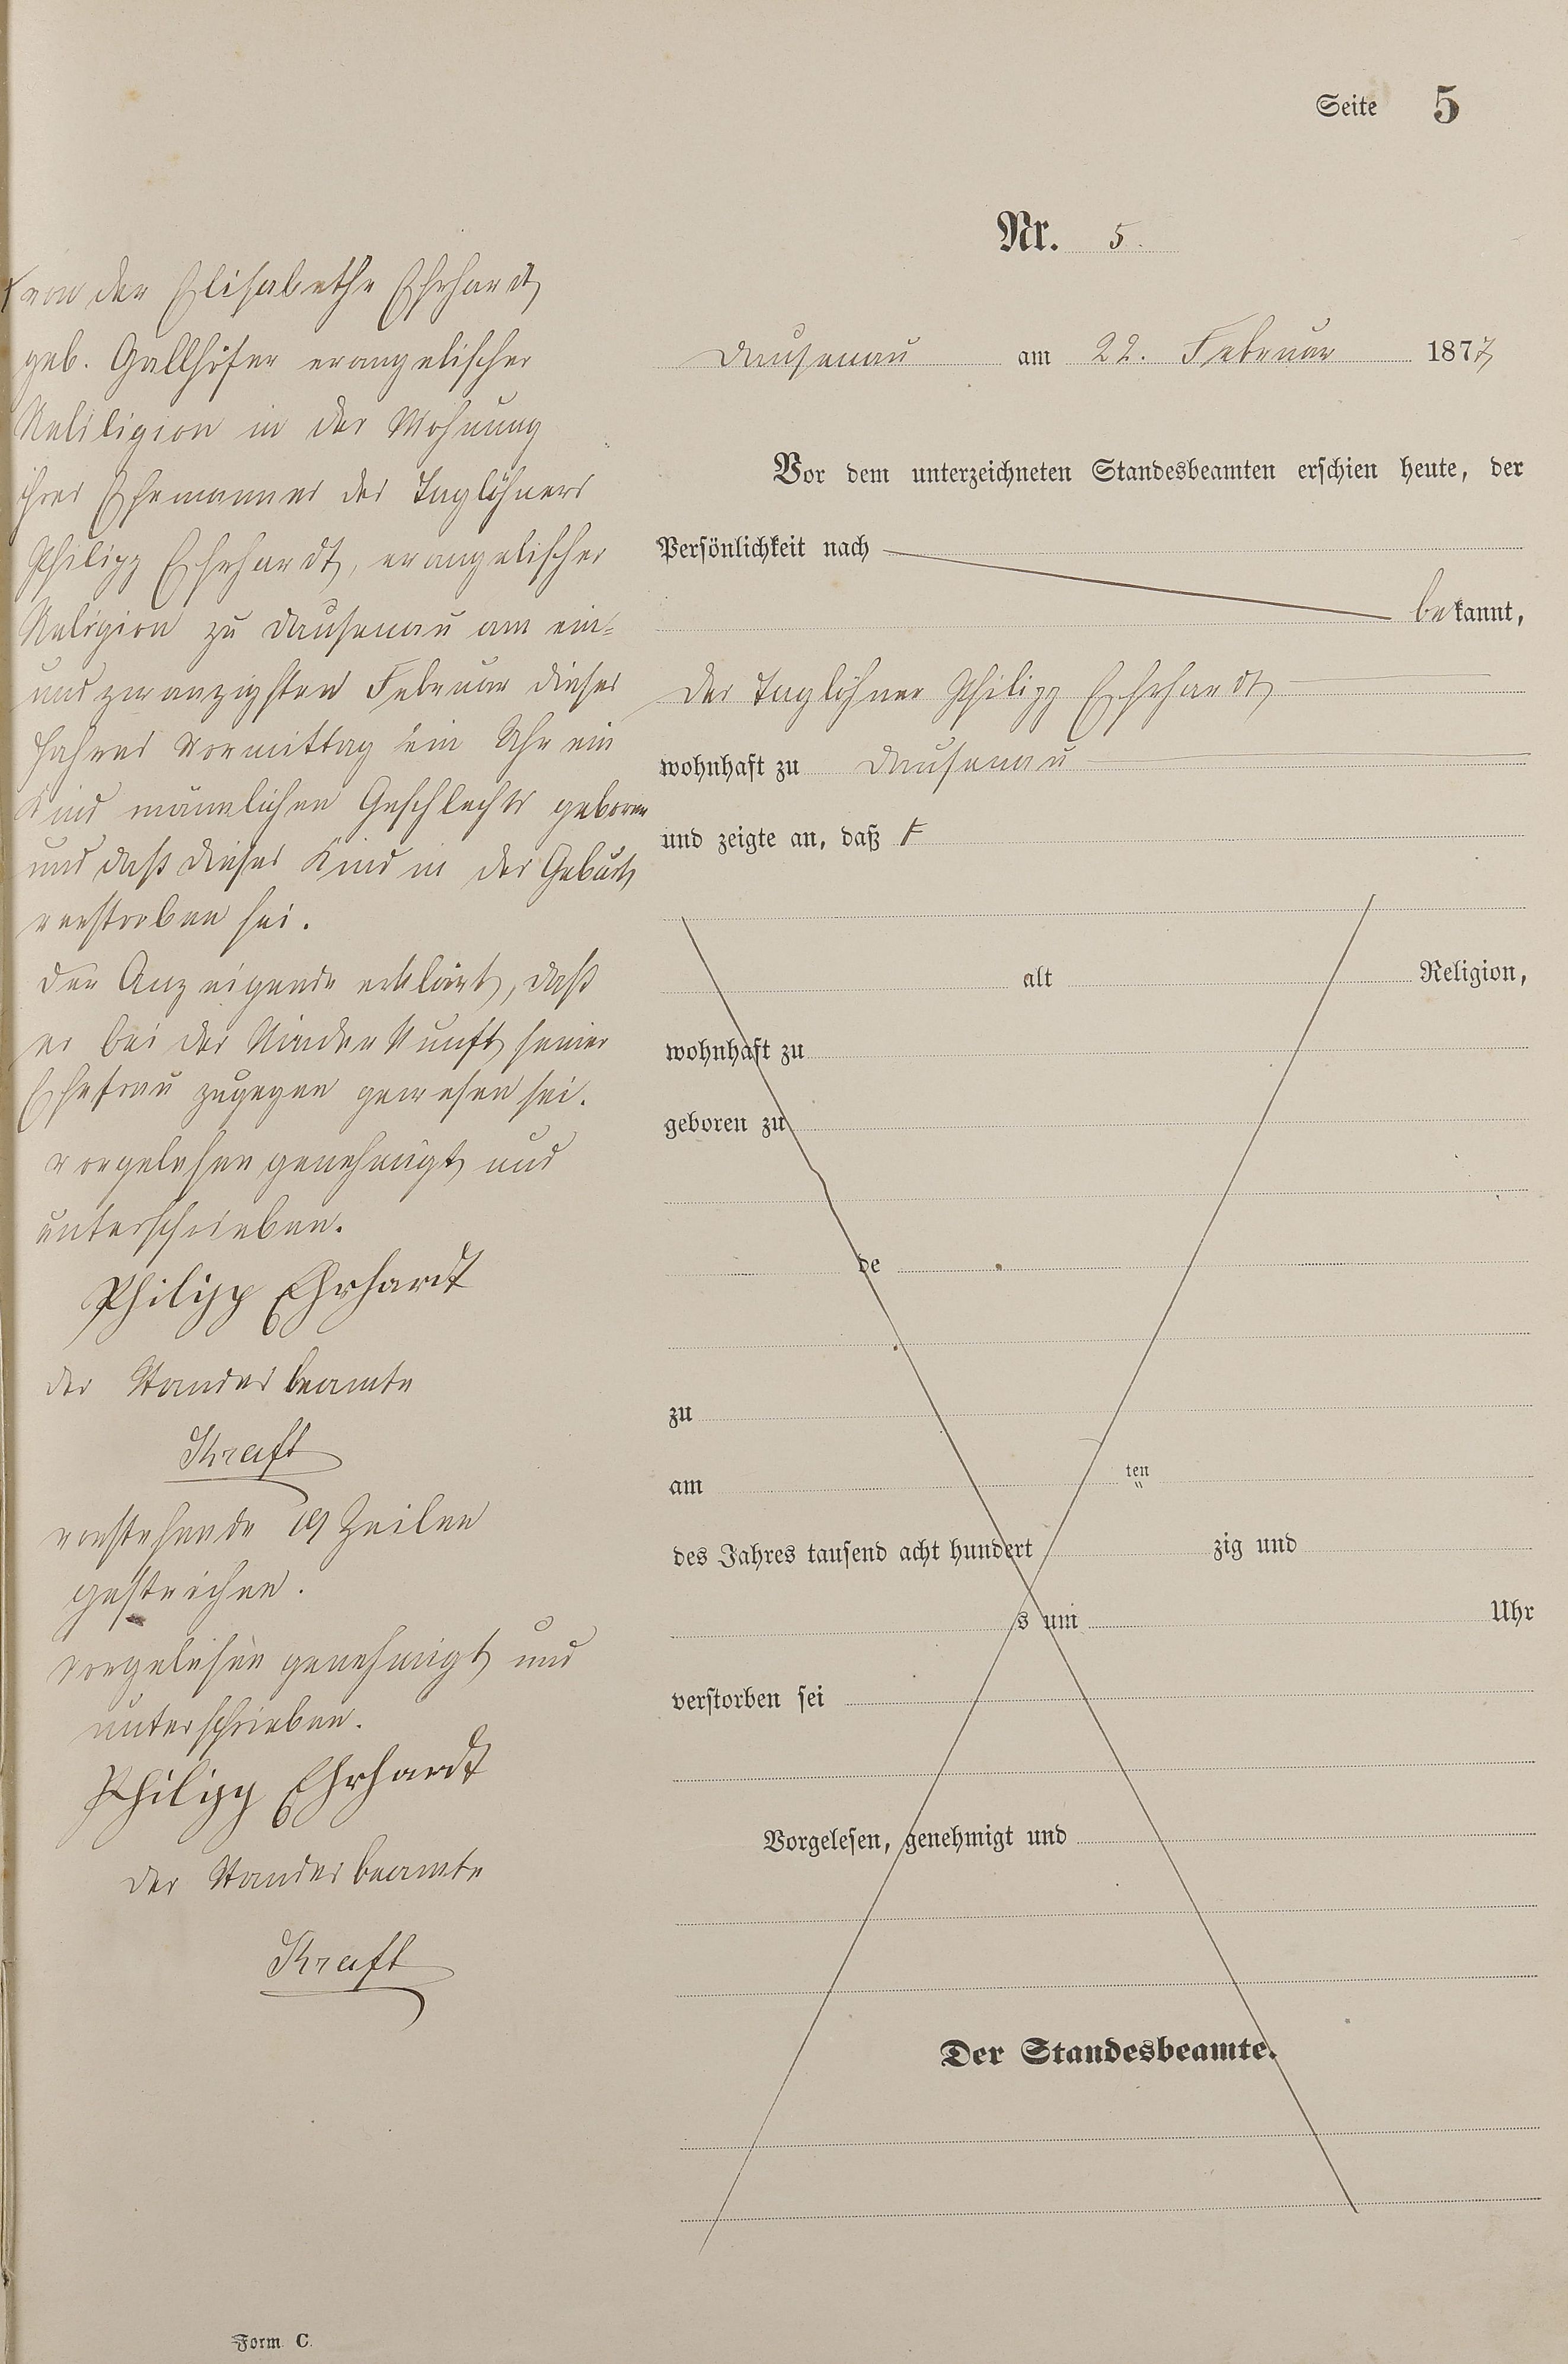 Seite 5
Nr. 5.
Dausenau am 22. Februar 1877
Vor dem unterzeichneten Standesbeamten erschien heute, der
Persönlichkeit nach
bekannt,
der Taglöhner Philipp Ehrhardt
wohnhaft zu Dausenau
und zeigte an, daß F
alt Religion,
wohnhaft zu
geboren zu
de
zu
am ten
des Jahres tausend acht hundert zig und
s um Uhr
verstorben sei
Vorgelesen, genehmigt und
Der Standesbeamte.
von der Elisabethe Ehrhardt
geb. Gallhöfer evangelischer
Reliligion in der Wohnung
ihres Ehemannes des Taglöhners
Philipp Ehrhardt, evangelischer
Religion zu Dausenau am ein=
und zwanzigsten Februar dieses
Jahres Vormittag ein Uhr ein
Kind männlichen Geschlechts geboren
und daß dieses Kind in der Geburt
verstorben sei.
Der Anzeigende erklärt, daß
er bei der Niederkunft seiner
Ehefrau zugegen gewesen sei.
vorgelesen genehmigt und
unterschrieben.
Philipp Ehrhardt
der Standesbeamte
Kraft
vorstehende 19 Zeilen
gestrichen.
vorgelesen genehmigt und
unterschrieben.
Philipp Ehrhardt
der Standesbeamte
Kraft
Form C.